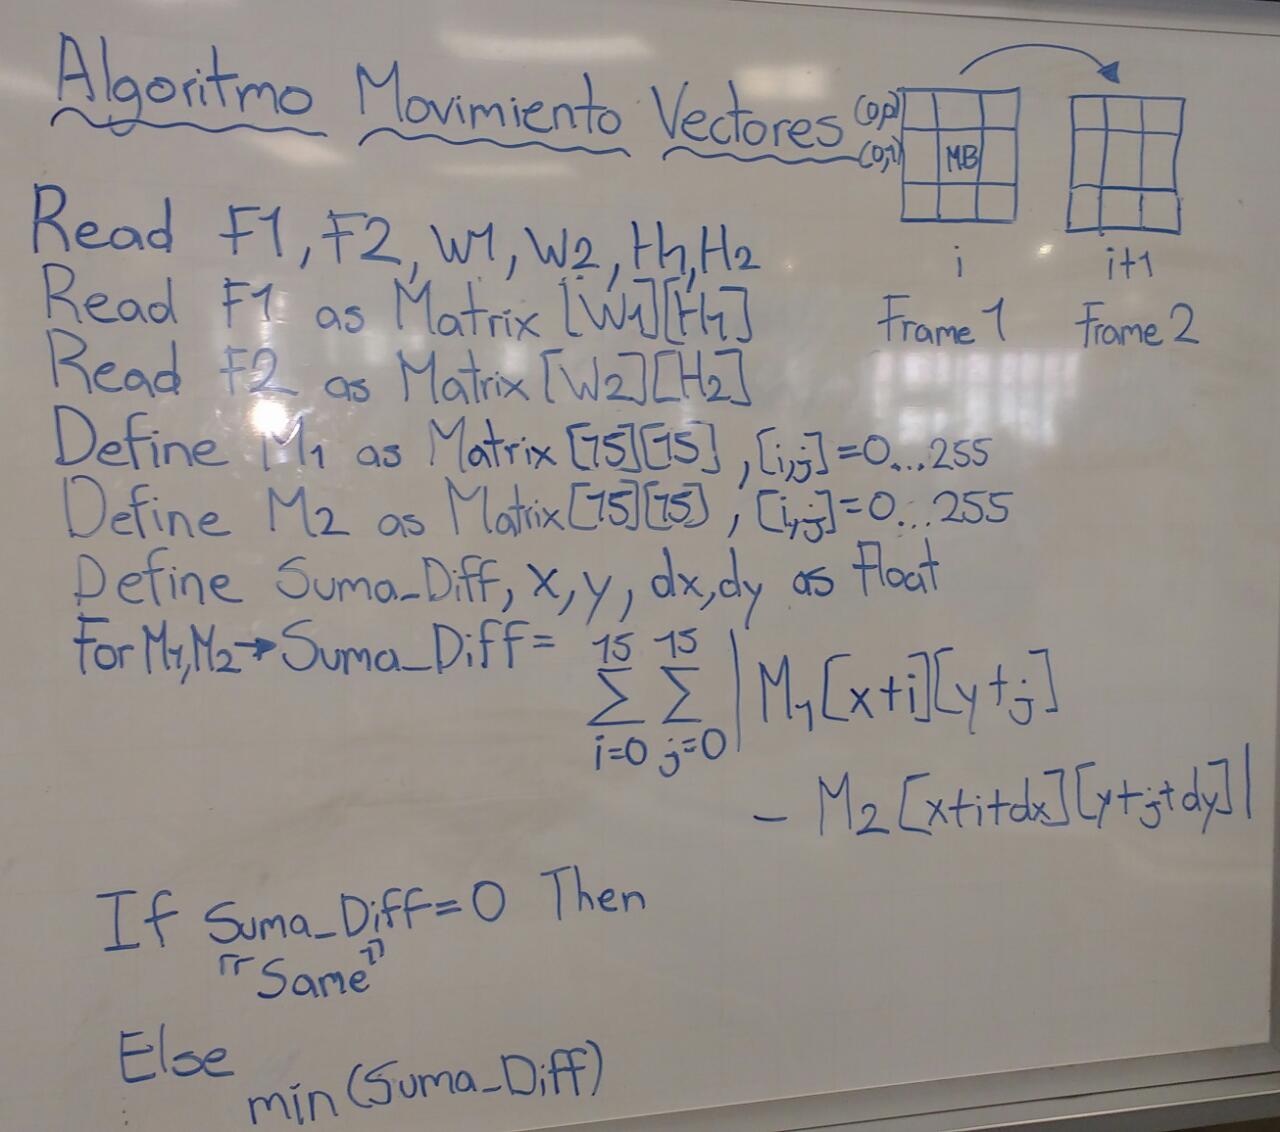 Algoritmo Movimiento Vectores
(0,0)
(0,1)
MB
i
i+1
Frame 1
Frame 2
Read F1, F2, W1, W2, H1, H2
Read F1 as Matrix [W1][H1]
Read F2 as Matrix [W2][H2]
Define M1 as Matrix [15][15], [i,j]=0...255
Define M2 as Matrix [15][15], [i,j]=0...255
Define Suma_Diff, x, y, dx, dy as Float
For M1,M2→Suma_Diff= 15 15
Σ Σ | M1 [x+i][y+j]
i=0 j=0
- M2 [x+i+dx][y+j+dy]|
If Suma_Diff=0 Then
"Same"
Else
min (Suma_Diff)